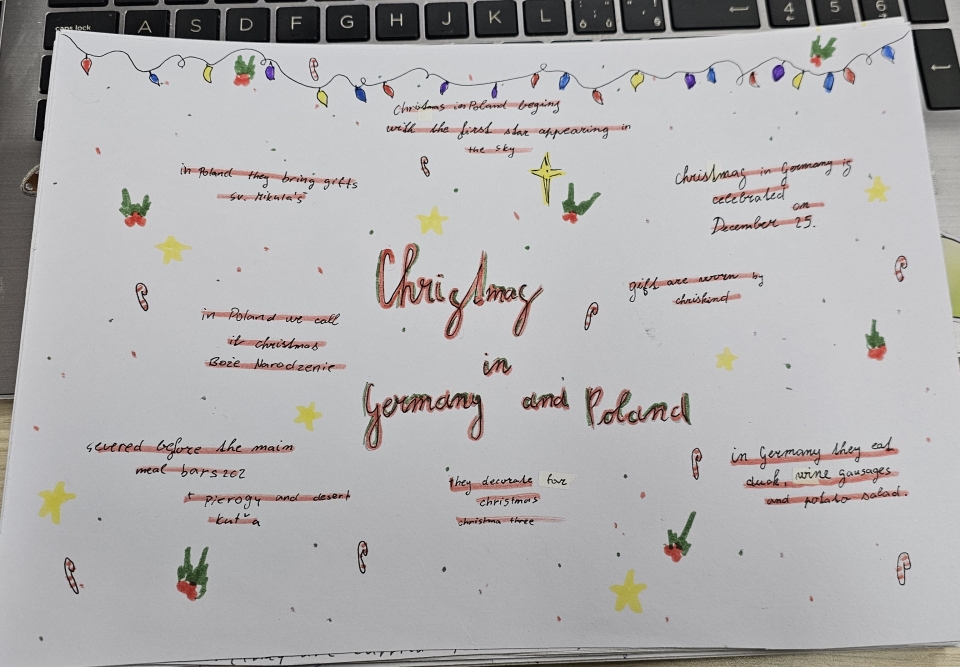 caps lock
A S D F G H J K L
4 5 6
Christmas in Poland begins
with the first star appearing in
the sky
in Poland they bring gifts
sv. Mikula's
Christmas in Germany is
celebrated on
December 25.
Christmas
in
Germany and Poland
gift are worn by
chriskind
in Poland we call
it christmas
Boże Narodzenie
severed before the main
meal bars202
+ pierogy and desert
kut'a
they decorate for
christmas
christma three
in Germany they eat
duck, wine gausages
and potato salad.